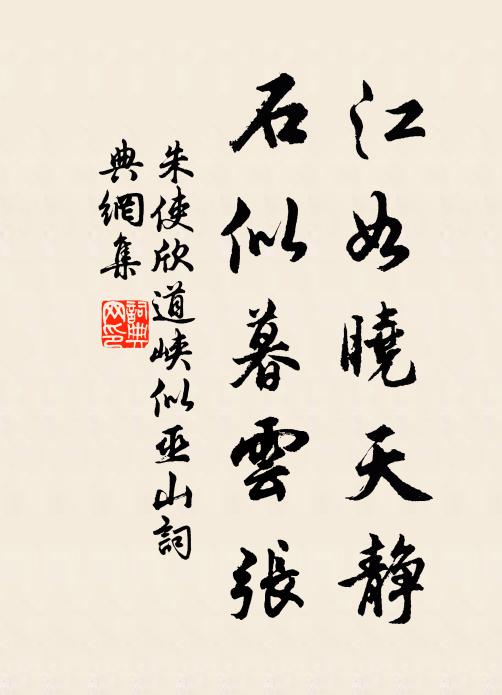 江如曉天静
石似暮雲張
朱使欣道峡似巫山詞
典網集
詞典
网印